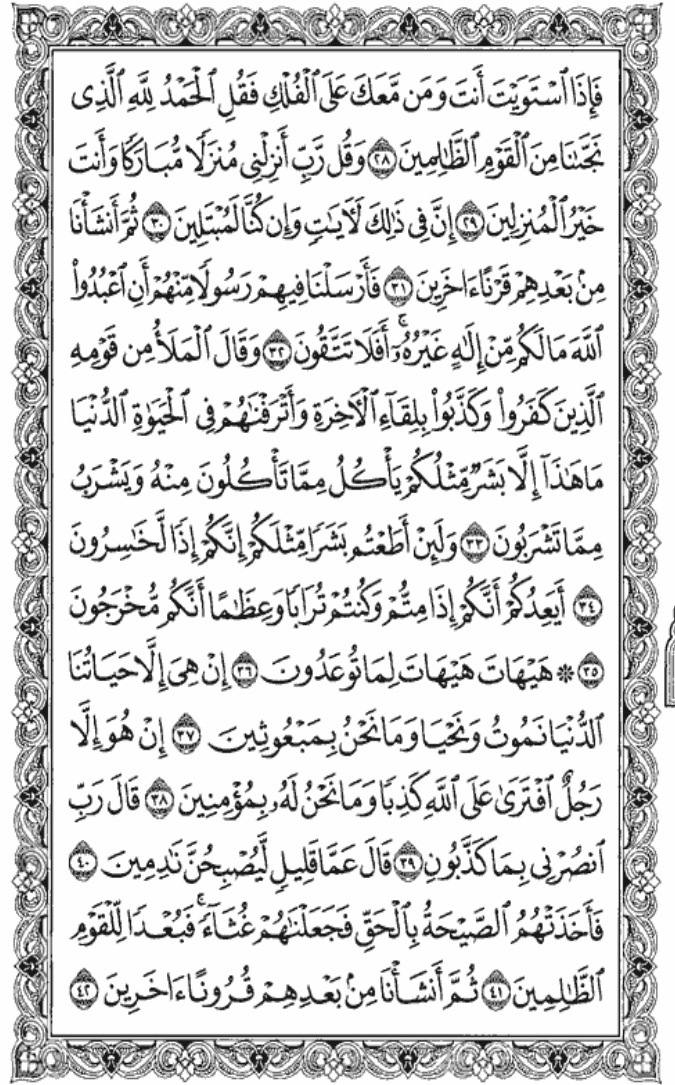 فَإِذَا ٱسْتَوَيْتَ أَنتَ وَمَن مَّعَكَ عَلَى ٱلْفُلْكِ فَقُلِ ٱلْحَمْدُ لِلَّهِ ٱلَّذِى
نَجَّىٰنَا مِنَ ٱلْقَوْمِ ٱلظَّٰلِمِينَ ٢٨ وَقُل رَّبِّ أَنزِلْنِى مُنزَلًا مُّبَارَكًا وَأَنتَ
خَيْرُ ٱلْمُنزِلِينَ ٢٩ إِنَّ فِى ذَٰلِكَ لَـَٔايَٰتٍ وَإِن كُنَّا لَمُبْتَلِينَ ٣٠ ثُمَّ أَنشَأْنَا
مِنۢ بَعْدِهِمْ قَرْنًا ءَاخَرِينَ ٣١ فَأَرْسَلْنَا فِيهِمْ رَسُولًا مِّنْهُمْ أَنِ ٱعْبُدُوا۟
ٱللَّهَ مَا لَكُم مِّنْ إِلَٰهٍ غَيْرُهُۥٓ ۚ أَفَلَا تَتَّقُونَ ٣٢ وَقَالَ ٱلْمَلَأُ مِن قَوْمِهِ
ٱلَّذِينَ كَفَرُوا۟ وَكَذَّبُوا۟ بِلِقَآءِ ٱلْـَٔاخِرَةِ وَأَتْرَفْنَٰهُمْ فِى ٱلْحَيَوٰةِ ٱلدُّنْيَا
مَا هَٰذَآ إِلَّا بَشَرٌ مِّثْلُكُمْ يَأْكُلُ مِمَّا تَأْكُلُونَ مِنْهُ وَيَشْرَبُ
مِمَّا تَشْرَبُونَ ٣٣ وَلَئِنْ أَطَعْتُم بَشَرًا مِّثْلَكُمْ إِنَّكُمْ إِذًا لَّخَٰسِرُونَ
٣٤ أَيَعِدُكُمْ أَنَّكُمْ إِذَا مِتُّمْ وَكُنتُمْ تُرَابًا وَعِظَٰمًا أَنَّكُم مُّخْرَجُونَ
٣٥ ۞ هَيْهَاتَ هَيْهَاتَ لِمَا تُوعَدُونَ ٣٦ إِنْ هِىَ إِلَّا حَيَاتُنَا
ٱلدُّنْيَا نَمُوتُ وَنَحْيَا وَمَا نَحْنُ بِمَبْعُوثِينَ ٣٧ إِنْ هُوَ إِلَّا
رَجُلٌ ٱفْتَرَىٰ عَلَى ٱللَّهِ كَذِبًا وَمَا نَحْنُ لَهُۥ بِمُؤْمِنِينَ ٣٨ قَالَ رَبِّ
ٱنصُرْنِى بِمَا كَذَّبُونِ ٣٩ قَالَ عَمَّا قَلِيلٍ لَّيُصْبِحُنَّ نَٰدِمِينَ ٤٠
فَأَخَذَتْهُمُ ٱلصَّيْحَةُ بِٱلْحَقِّ فَجَعَلْنَٰهُمْ غُثَآءً ۚ فَبُعْدًا لِّلْقَوْمِ
ٱلظَّٰلِمِينَ ٤١ ثُمَّ أَنشَأْنَا مِنۢ بَعْدِهِمْ قُرُونًا ءَاخَرِينَ ٤٢